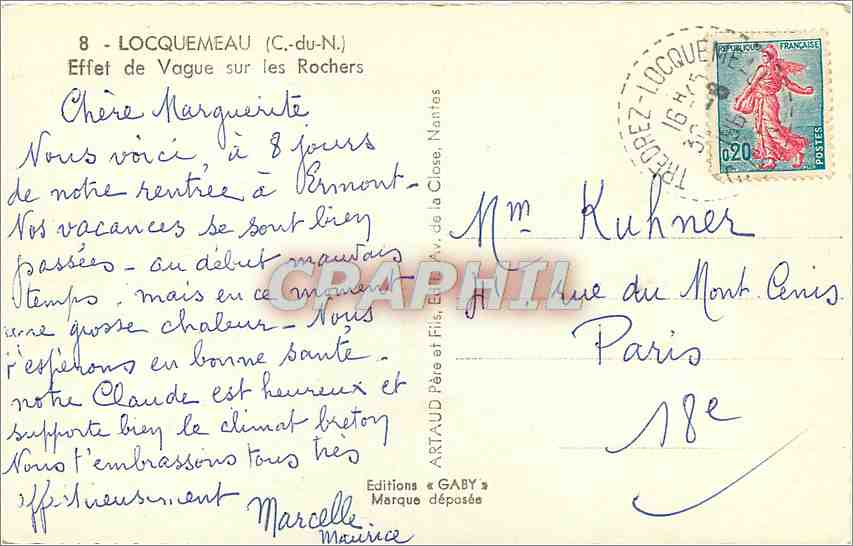 8 - LOCQUEMEAU (C.-du-N.)
Effet de Vague sur les Rochers
Chère Marguerite
Nous voici, à 8 jours
de notre rentrée à Ermont -
Nos vacances se sont bien
passées - au début mauvais
temps, mais en ce moment
une grosse chaleur - Nous
t'espérons en bonne santé -
notre Claude est heureux et
supporte bien le climat breton
Nous t'embrassons tous très
affectueusement
Marcelle
Maurice
ARTAUD Père et Fils, Edit., Av. de la Close, Nantes
Editions « GABY »
Marque déposée
CPAPHIL
TRÉDREZ-LOCQUEMEAU
16 H 45
RÉPUBLIQUE FRANÇAISE
0,20
POSTES
Mme Kuhner
rue du Mont Cenis
Paris
18e